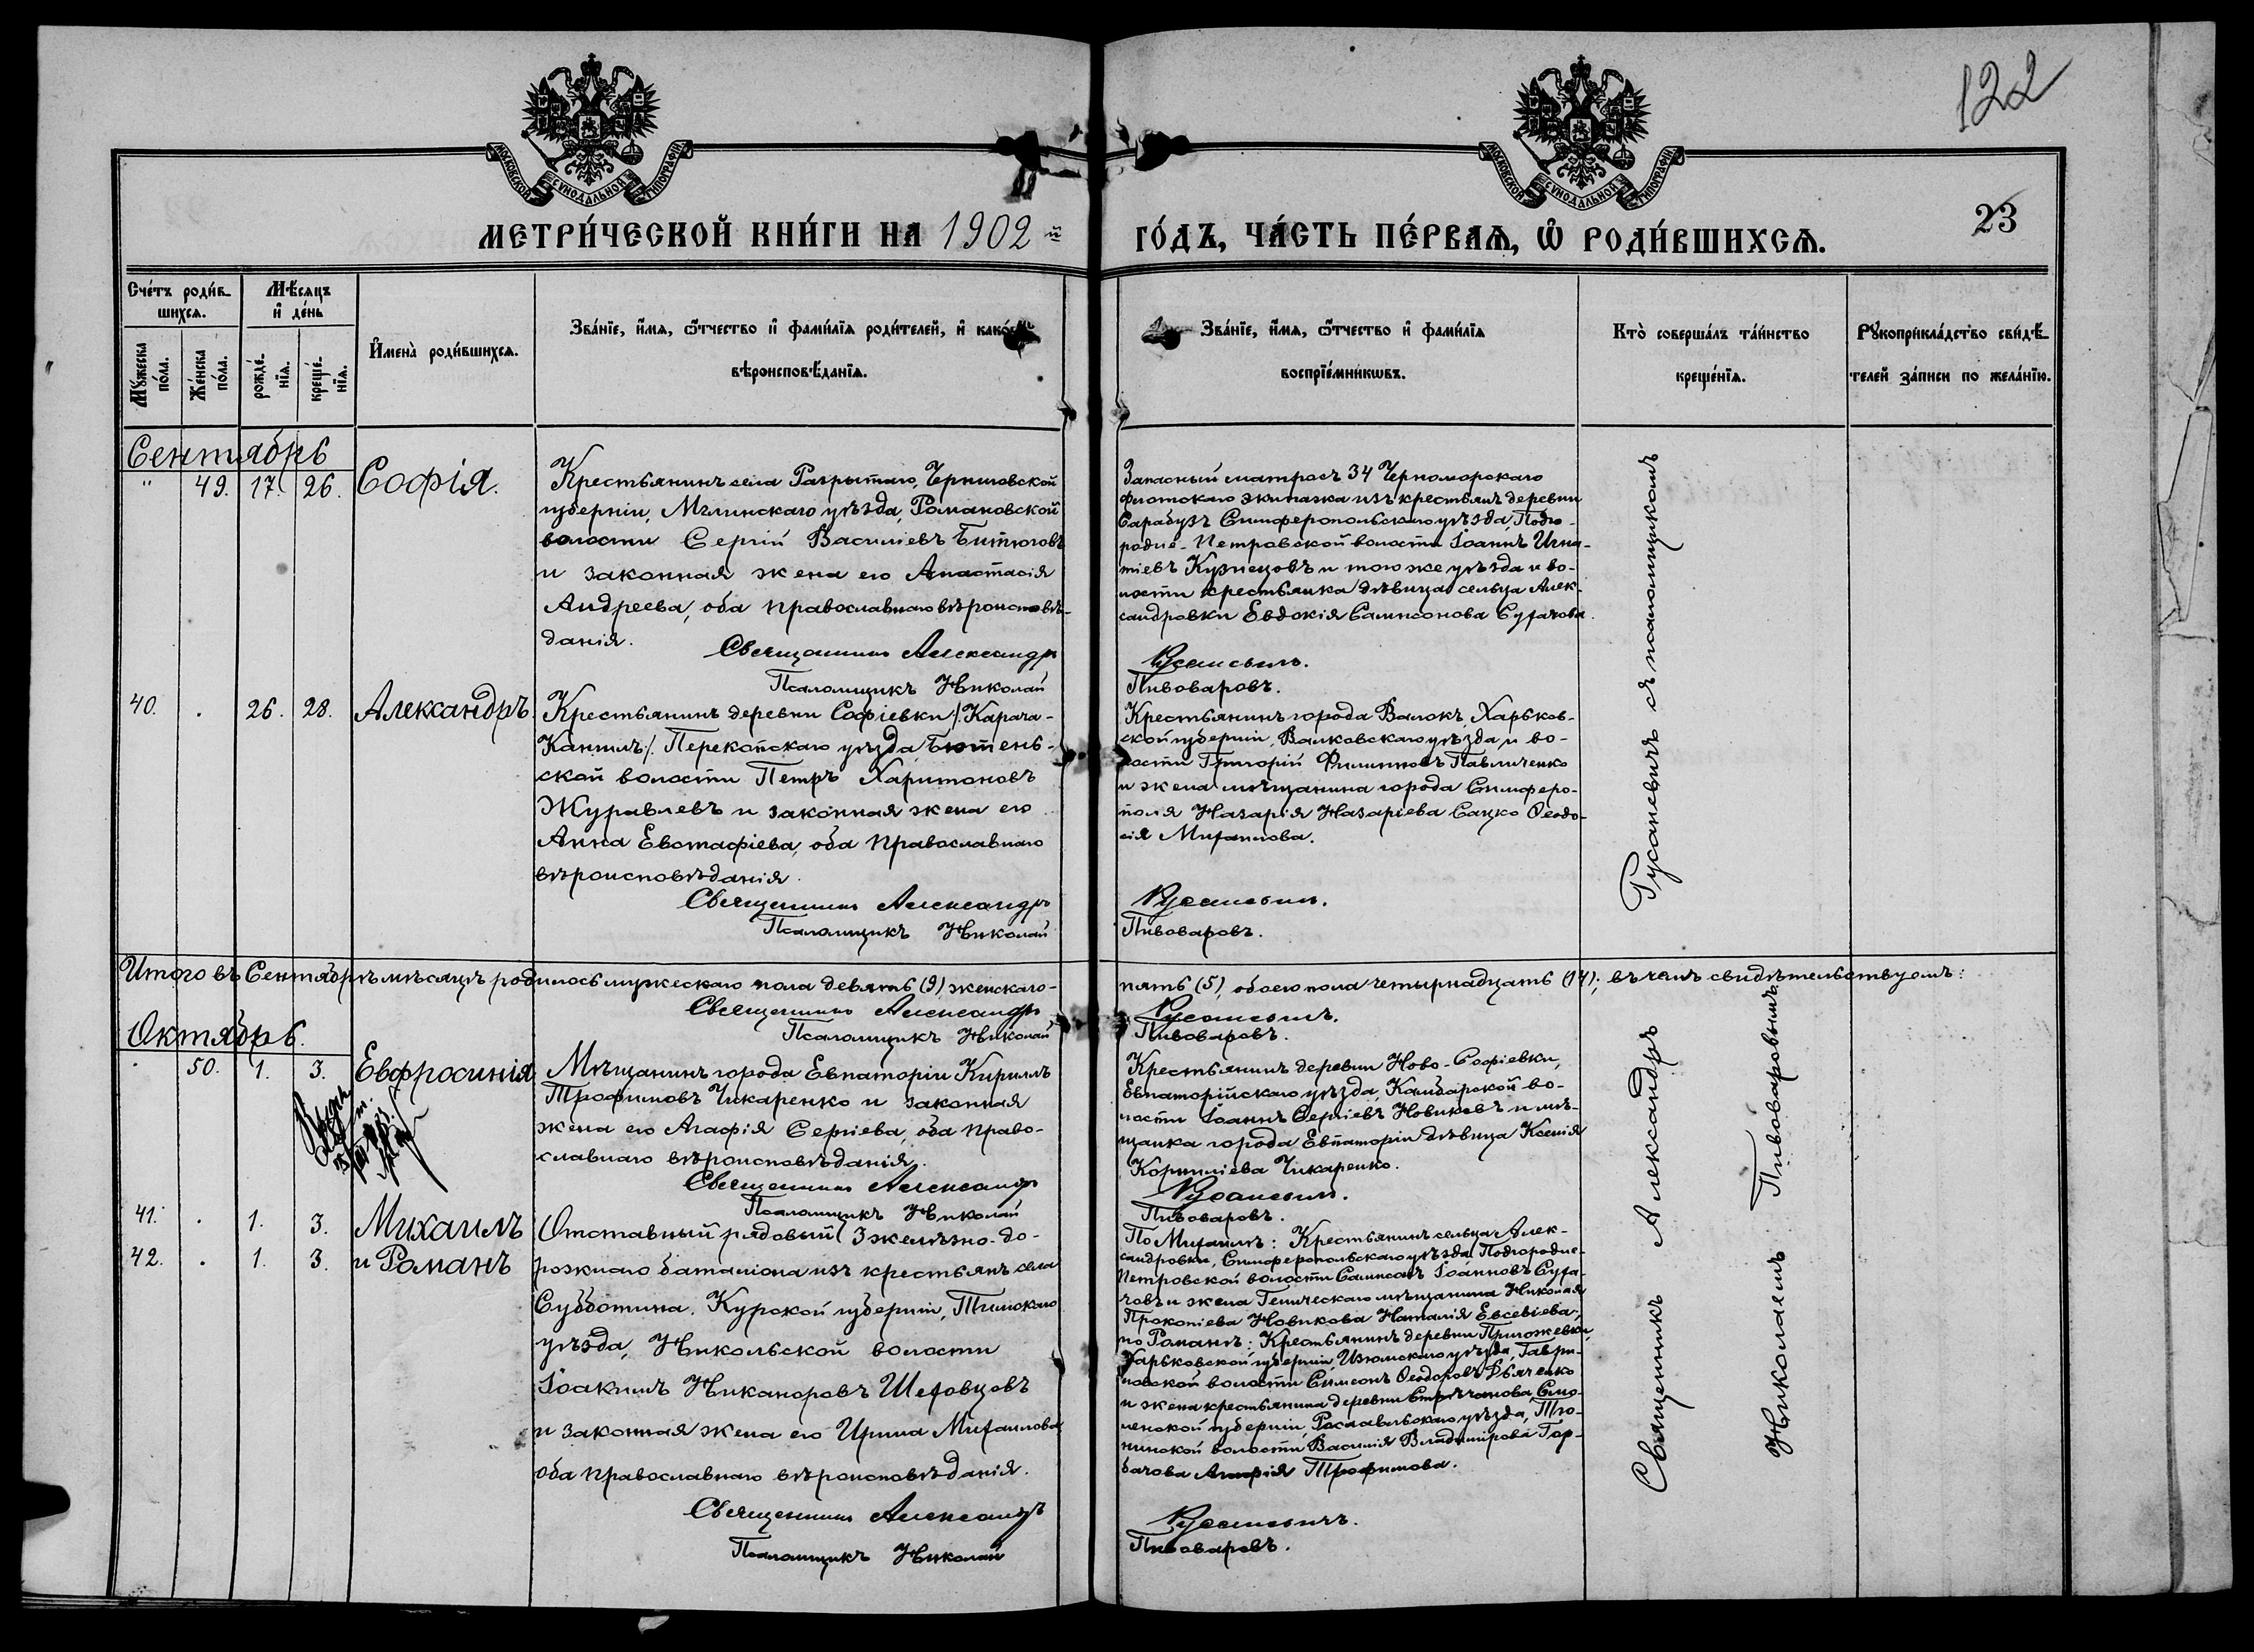 122
МОСКОВСКОЙ СУНОДАЛЬНОЙ ТИПОГРАФІИ
МОСКОВСКОЙ СУНОДАЛЬНОЙ ТИПОГРАФІИ
МЕТРИ́ЧЕСКОЙ КНИ́ГИ НА 1902 й
ГО́ДЪ, ЧА́СТЬ ПЕ́РВАѦ, Ѡ҆ РОДИ́ВШИХСѦ.
23
Сче́тъ роди́в-
шихсѧ.
Мѣсѧцъ
и҆ де́нь
Мꙋ́жеска
по́ла.
Же́нска
по́ла.
рожде́-
нїѧ.
креще́-
нїѧ.
И҆мена̀ роди́вшихсѧ.
Зва́нїе, и҆́мѧ, ѻ҆́тчество и҆ фами́лїѧ роди́телей, и҆ како́
вѣроисповѣ́данїѧ.
Зва́нїе, и҆́мѧ, ѻ҆́тчество и҆ фами́лїѧ
воспрїе́мникѡвъ.
Кто̀ соверша́лъ та́инство
креще́нїѧ.
Рꙋкоприкла́дство свидѣ́-
телей за́писи по жела́нїю.
Сентябрь
" 49. 17. 26. Софія.
Крестьянинъ села Разрытаго, Черниговской
губерніи, Мглинскаго уѣзда, Романовской
волости Сергій Василіевъ Битюговъ
и законная жена его Анастасія
Андреева, оба православнаго вѣроисповѣ-
данія.
Священникъ Александръ
Псаломщикъ Николай
Запасный матросъ 34 Черноморскаго
флотскаго экипажа изъ крестьянъ деревни
Сарабузъ Симферопольскаго уѣзда, Подго-
родне-Петровской волости Іоаннъ Игна-
тіевъ Кузнецовъ и того же уѣзда и во-
лости крестьянка дѣвица сельца Алек-
сандровки Евдокія Сампсонова Сухачова.
Русаневичъ.
Пивоваровъ.
40. . 26. 28. Александръ
Крестьянинъ деревни Софіевки /:Карача-
Кангилъ:/ Перекопскаго уѣзда, Бютень-
ской волости Петръ Харитоновъ
Журавлевъ и законная жена его
Анна Евстафіева, оба православнаго
вѣроисповѣданія.
Священникъ Александръ
Псаломщикъ Николай
Крестьянинъ города Валокъ, Харьков-
ской губерніи, Валковскаго уѣзда и во-
лости Григорій Филипповъ Павличенко
и жена мѣщанина города Симферо-
поля Назарія Назаріева Сацко Ѳеодо-
сія Михаилова.
Русаневичъ.
Пивоваровъ.
Итого въ Сентябрѣ мѣсяцѣ родилось мужескаго пола девять (9), женскаго-
пять (5), обоего пола четырнадцать (14); въ чемъ свидѣтельствуемъ:
Священникъ Александръ
Псаломщикъ Николай
Русаневичъ.
Пивоваровъ.
Октябрь.
50. 1. 3. Евфросинія
Мѣщанинъ города Евпаторіи Кириллъ
Трофимовъ Чикаренко и законная
жена его Агафія Сергіева, оба право-
славнаго вѣроисповѣданія.
Священникъ Александръ
Псаломщикъ Николай
Крестьянинъ деревни Ново-Софіевки,
Евпаторійскаго уѣзда, Камбарской во-
лости Іоаннъ Сергіевъ Новиковъ и мѣ-
щанка города Евпаторіи дѣвица Ксенія
Корниліева Чикаренко.
Русаневичъ.
Пивоваровъ.
41. . 1. 3. Михаилъ
42. . 1. 3. и Романъ
Отставный рядовый 3 желѣзно-до-
рожнаго баталіона изъ крестьянъ села
Субботина, Курской губерніи, Тимскаго
уѣзда, Никольской волости
Іоакимъ Никаноровъ Шеховцовъ
и законная жена его Ирина Михаилова,
оба православнаго вѣроисповѣданія.
Священникъ Александръ
Псаломщикъ Николай
По Михаилѣ: Крестьянинъ сельца Алек-
сандровки, Симферопольскаго уѣзда, Подгородне-
Петровской волости Сампсонъ Іоанновъ Суха-
човъ и жена Геническаго мѣщанина Николая
Прокопіева Новикова Наталія Евсевіева;
по Романѣ: Крестьянинъ деревни
Харьковской губерніи, Изюмскаго уѣзда, Гаври-
ловской волости Симеонъ Ѳеодоровъ Дьяченко
и жена крестьянина деревни Смо-
ленской губерніи, Рославльскаго уѣзда,
волости Василія Владимірова Гор-
бачова Агафія Трофимова.
Русаневичъ.
Пивоваровъ.
Священникъ Александръ Русаневичъ съ псаломщикомъ
Николаемъ Пивоваровымъ.